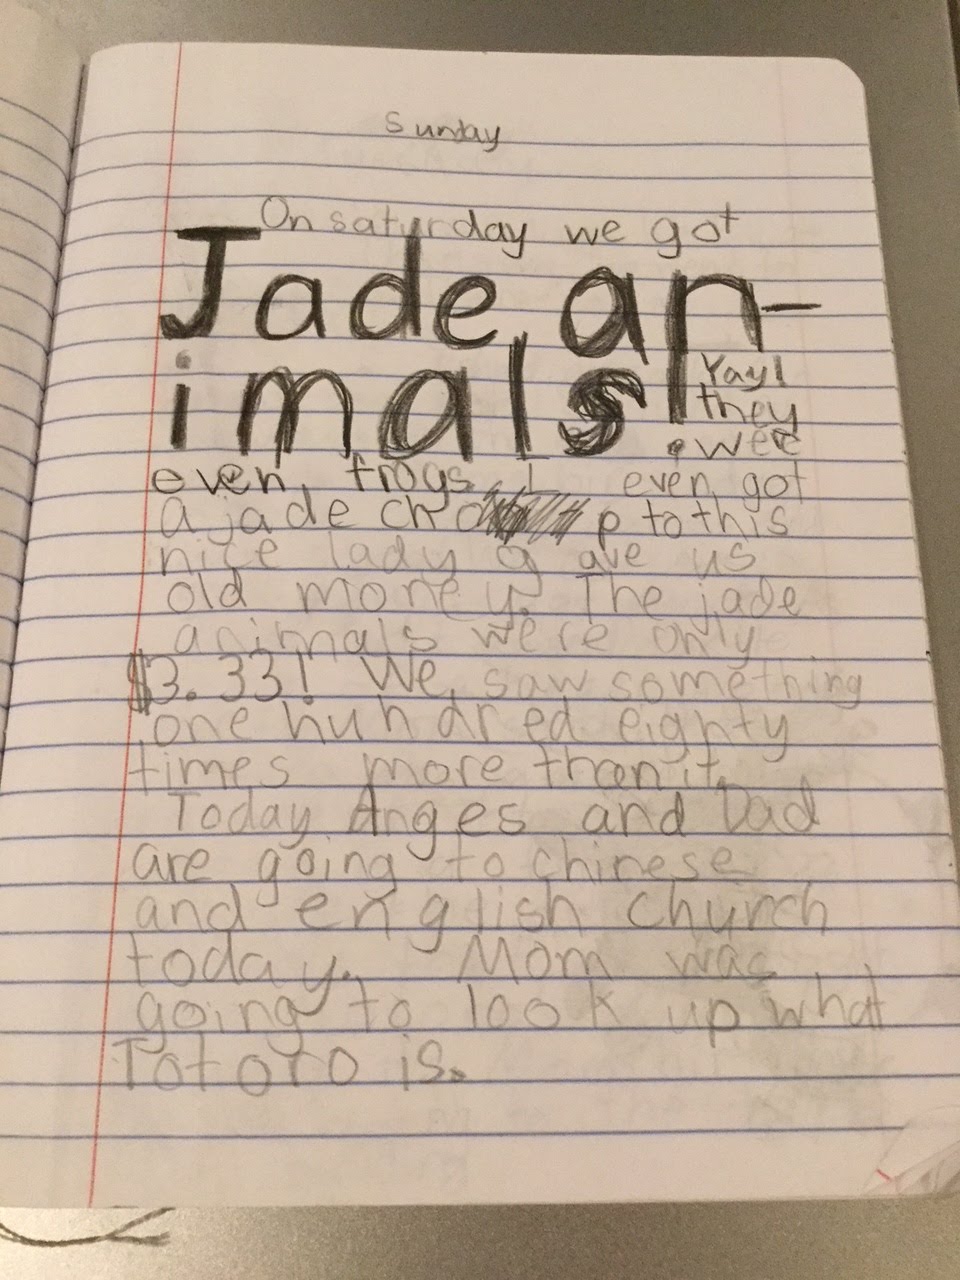 Sunday
On saturday we got
Jade an-
imals!
Yay!
they
were
even frogs. I even got
a jade cho p to this
nice lady gave us
old money. The jade
animals were only
$3.33! We saw something
one hundred eighty
times more than it.
Today Anges and Dad
are going to chinese
and english church
today. Mom was
going to look up what
Totoro is.